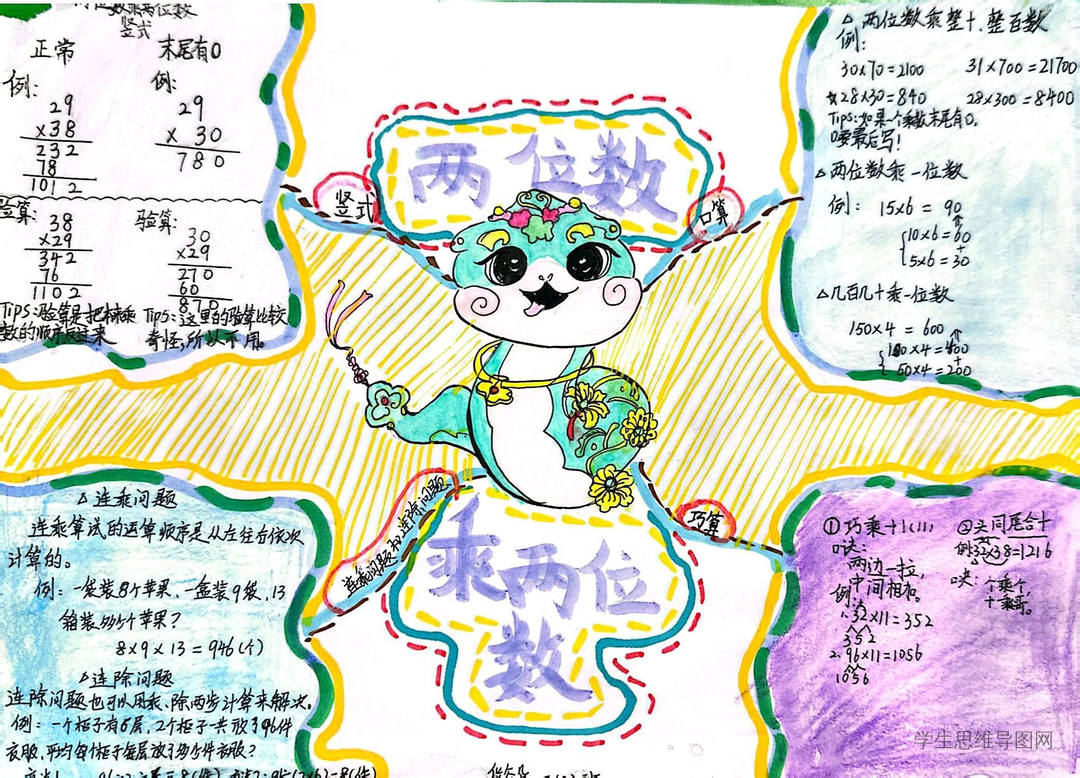 数乘两位数
竖式
正常 末尾有0
例: 例:
29 29
×38 × 30
232 780
78
1012
验算: 验算:
38 30
×29 ×29
342 270
76 60
1102 870
Tips:验算是把相乘
数的顺序反过来
Tips:这里的验算比较
奇怪,所以不用。
竖式
两位数
口算
△两位数乘整十、整百数
例:
30×70=2100 31×700=21700
28×30=840 28×300=8400
Tips:如果一个乘数末尾有0,
0要最后写!
△两位数乘一位数
例: 15×6=90
10×6=60
+
5×6=30
△几百几十乘一位数
150×4=600
100×4=400
+
50×4=200
连乘问题和连除问题
巧算
乘两位
数
△连乘问题
连乘算试的运算顺序是从左往右依次
计算的。
例:一袋装8个苹果、一盒装9袋,13
箱装多少个苹果?
8×9×13=946(个)
△连除问题
连除问题也可以用乘、除两步计算来解决。
例:一个柜子有6层,2个柜子一共放396件
衣服,平均每个柜子每层放多少件衣服?
①巧乘十1(11)
口诀:
两边一拉,
中间相加。
例:
1.32×11=352
352
2.96×11=1056
1056
②头同尾合十
例:32×38=1216
口诀:个乘个,
十乘哥。
学生思维导图网